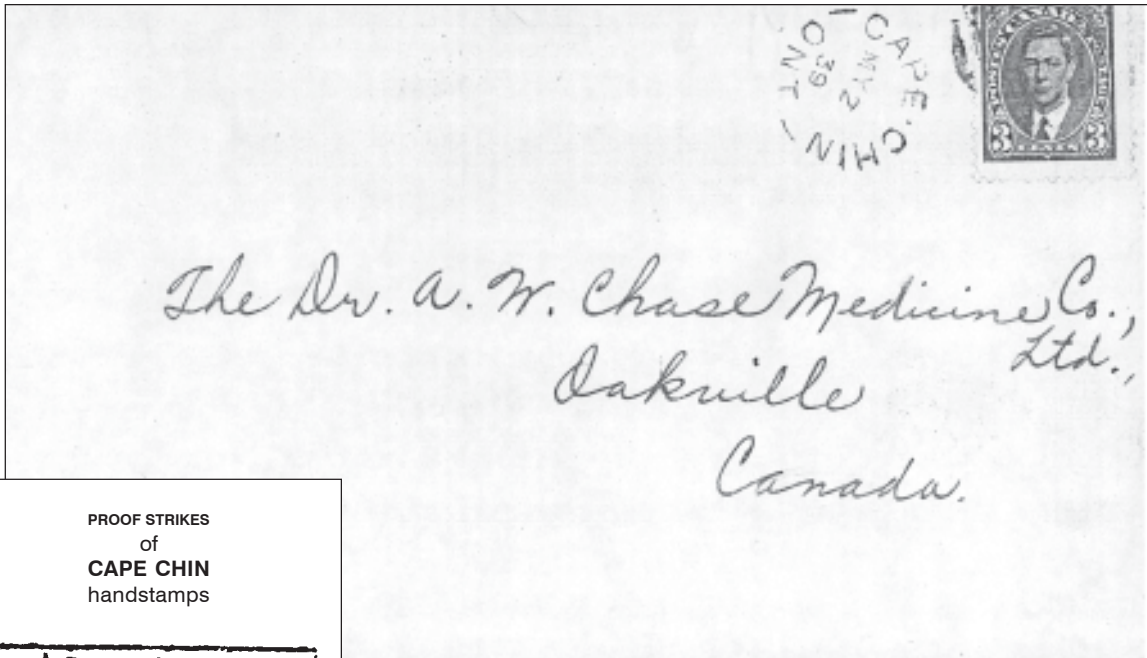 CAPE CHIN
MY 2
39
ONT
3 3
The Dr. A. W. Chase Medicine Co.,
Ltd.,
Oakville
Canada.
PROOF STRIKES
of
CAPE CHIN
handstamps